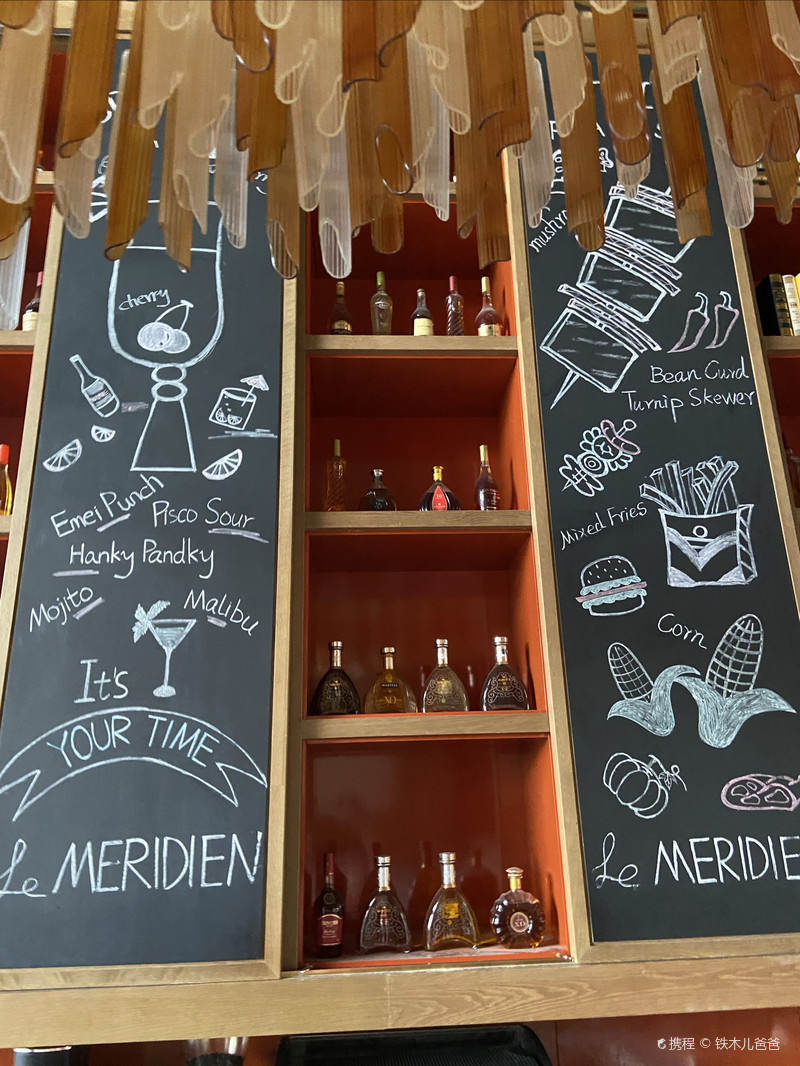 cherry
Emei Punch
Pisco Sour
Hanky Pandky
Mojito
Malibu
It's
YOUR TIME
Le MERIDIEN
XO
mushr
Bean Curd
Turnip Skewer
Mixed Fries
Corn
Le MERIDIE
携程 © 铁木儿爸爸